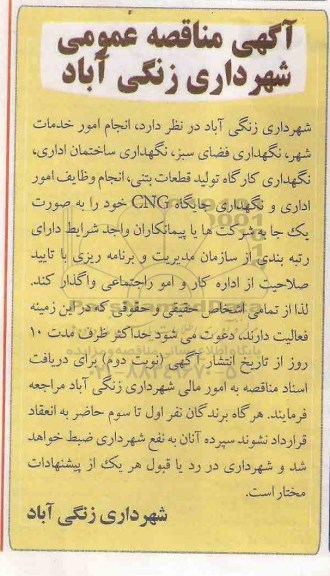 آگهی مناقصه عمومی
شهرداری زنگی آباد
شهرداری زنگی آباد در نظر دارد، انجام امور خدمات
شهر، نگهداری فضای سبز، نگهداری ساختمان اداری،
نگهداری کارگاه تولید قطعات بتنی، انجام وظایف امور
اداری و نگهداری جایگاه CNG خود را به صورت
یک جا به شرکت ها یا پیمانکاران واجد شرایط دارای
رتبه بندی از سازمان مدیریت و برنامه ریزی با تایید
صلاحیت از اداره کار و امو راجتماعی واگذار کند.
لذا از تمامی اشخاص حقیقی و حقوقی که در این زمینه
فعالیت دارند، دعوت می شود حداکثر ظرف مدت ۱۰
روز از تاریخ انتشار آگهی (نوبت دوم) برای دریافت
اسناد مناقصه به امور مالی شهرداری زنگی آباد مراجعه
فرمایند. هر گاه برندگان نفر اول تا سوم حاضر به انعقاد
قرارداد نشوند سپرده آنان به نفع شهرداری ضبط خواهد
شد و شهرداری در رد یا قبول هر یک از پیشنهادات
مختار است.
شهرداری زنگی آباد